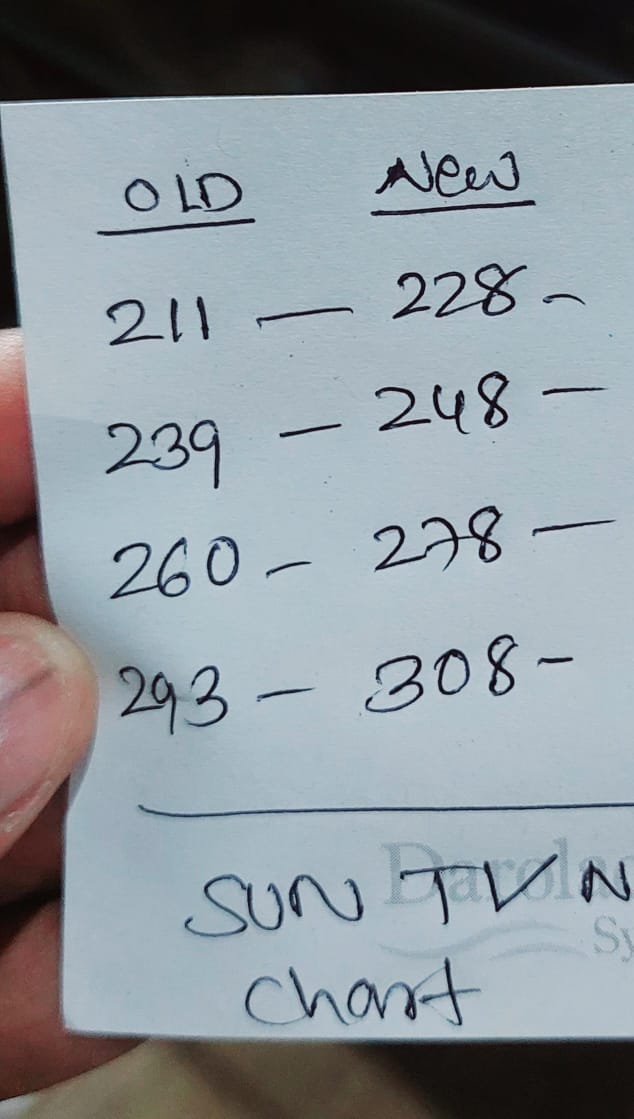 OLD New
211 — 228 -
239 — 248 —
260 - 278 —
293 — 308 -
SUN TV N
Chart